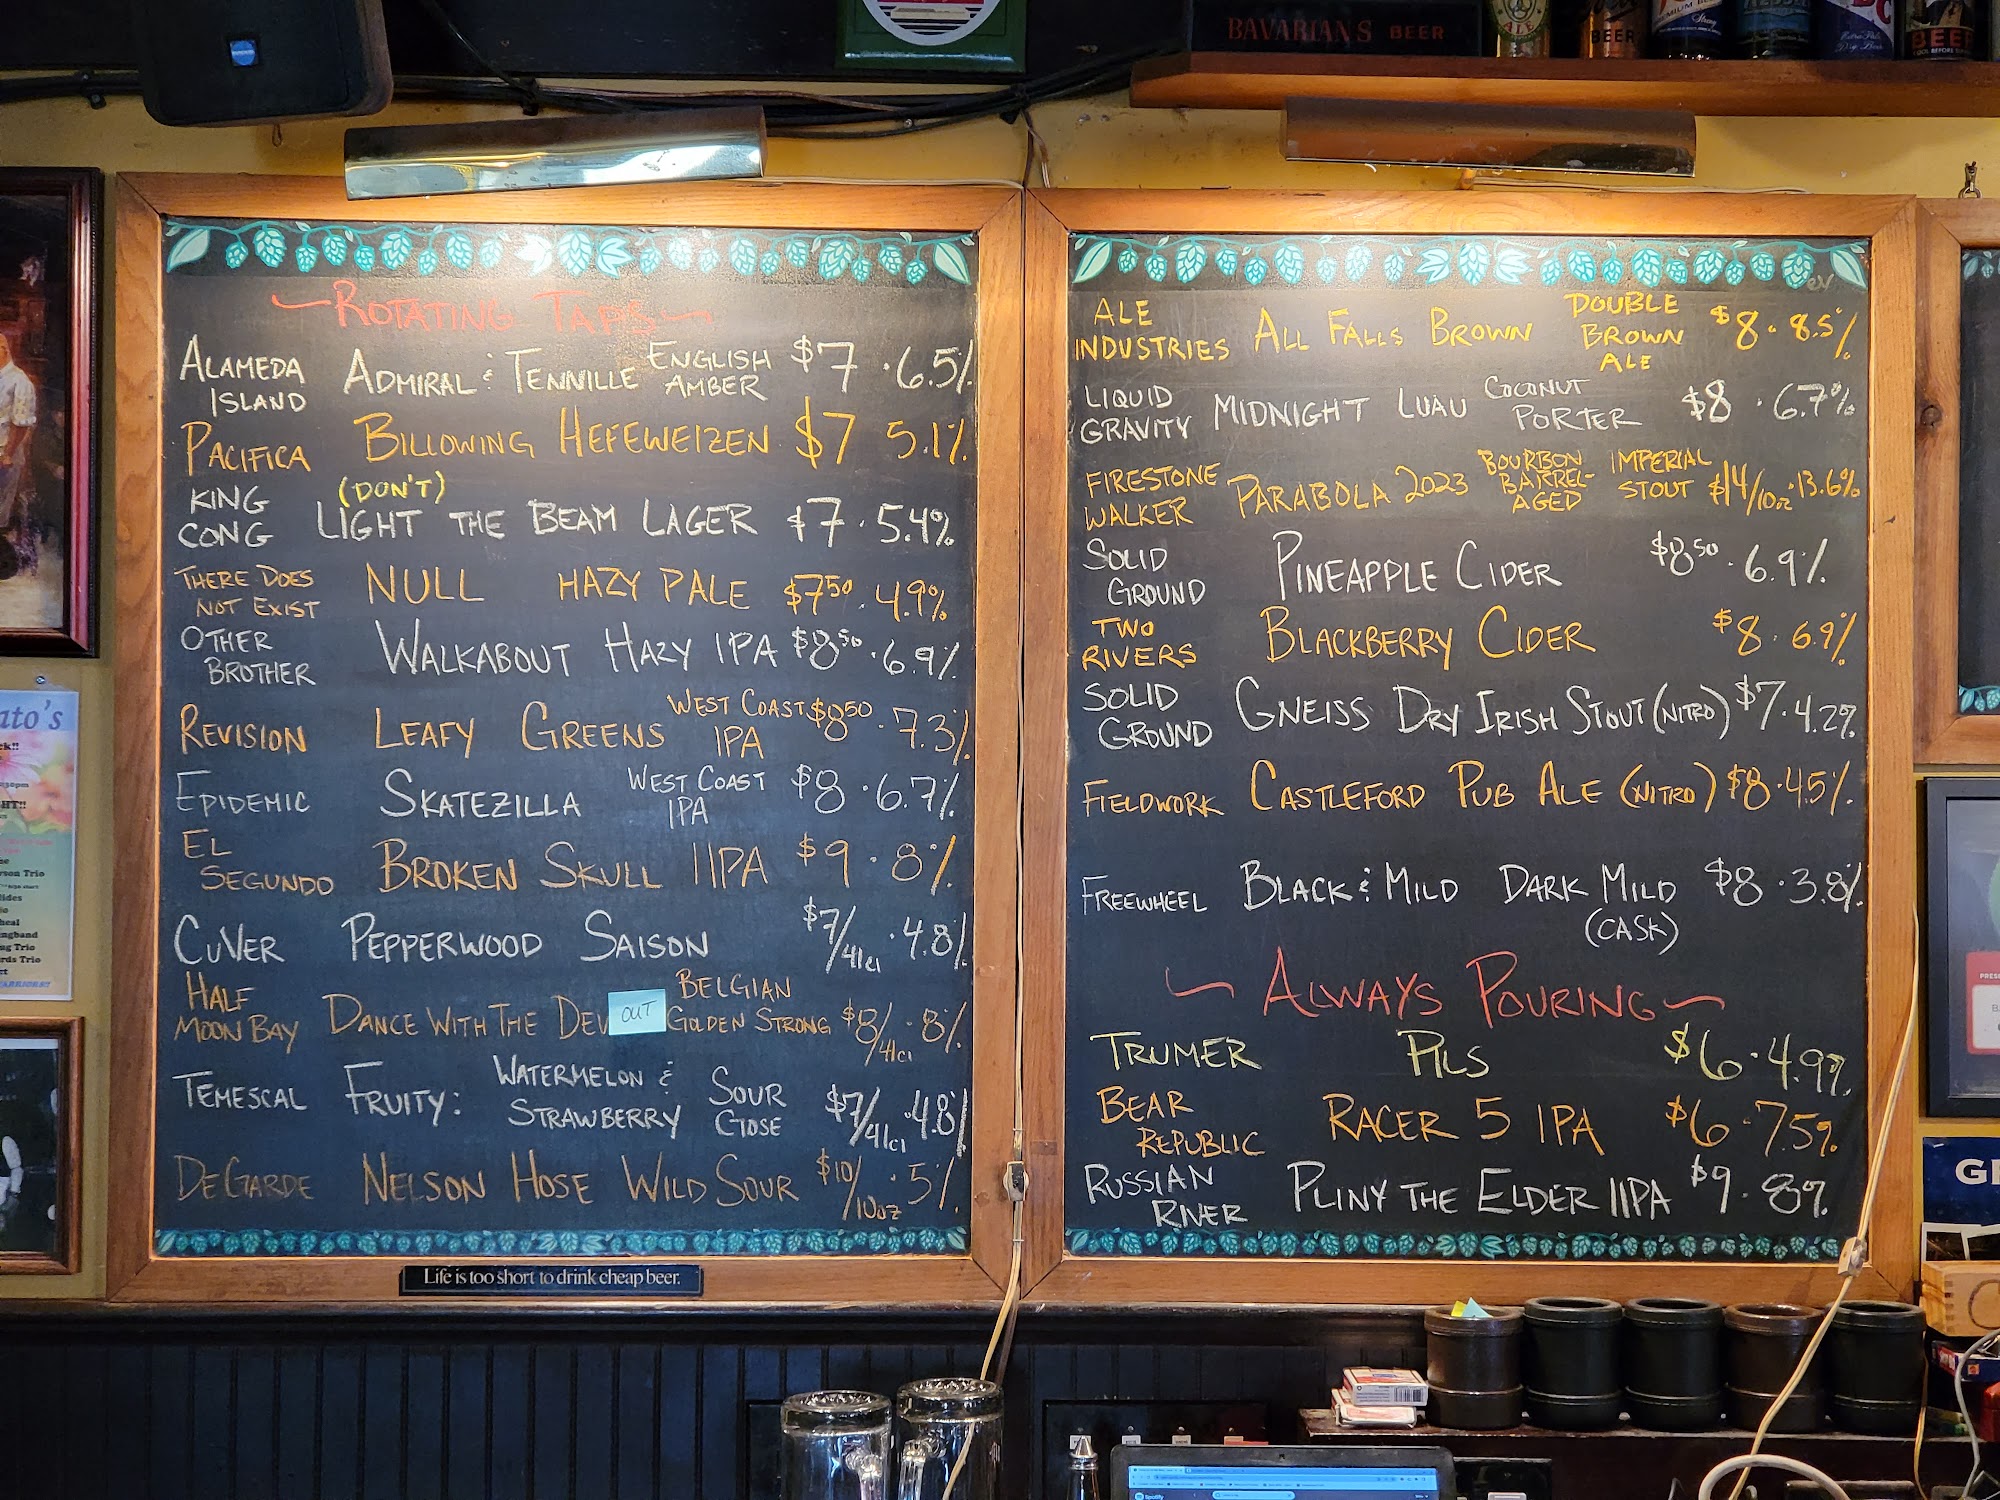 BAVARIANS BEER
ALE
BEER
BEER
~ROTATING TAPS~
ALAMEDA ISLAND ADMIRAL & TENNILLE ENGLISH AMBER $7 · 6.5%
PACIFICA BILLOWING HEFEWEIZEN $7 5.1%
KING CONG (DON'T) LIGHT THE BEAM LAGER $7 · 5.4%
THERE DOES NOT EXIST NULL HAZY PALE $7.50 · 4.9%
OTHER BROTHER WALKABOUT HAZY IPA $8.50 · 6.9%
REVISION LEAFY GREENS WEST COAST IPA $8.50 · 7.3%
EPIDEMIC SKATEZILLA WEST COAST IPA $8 · 6.7%
EL SEGUNDO BROKEN SKULL IIPA $9 · 8%
CUVER PEPPERWOOD SAISON $7/41cl · 4.8%
HALF MOON BAY DANCE WITH THE DEV OUT BELGIAN GOLDEN STRONG $8/41cl · 8%
TEMESCAL FRUITY: WATERMELON & STRAWBERRY SOUR GOSE $7/41cl · 4.8%
DEGARDE NELSON HOSE WILD SOUR $10/10oz · 5%
Life is too short to drink cheap beer.
ALE INDUSTRIES ALL FALLS BROWN DOUBLE BROWN ALE $8 · 8.5%
LIQUID GRAVITY MIDNIGHT LUAU COCONUT PORTER $8 · 6.7%
FIRESTONE WALKER PARABOLA 2023 BOURBON BARREL-AGED IMPERIAL STOUT $14/10oz · 13.6%
SOLID GROUND PINEAPPLE CIDER $8.50 · 6.9%
TWO RIVERS BLACKBERRY CIDER $8 · 6.9%
SOLID GROUND GNEISS DRY IRISH STOUT (NITRO) $7 · 4.2%
FIELDWORK CASTLEFORD PUB ALE (NITRO) $8 · 4.5%
FREEWHEEL BLACK & MILD DARK MILD (CASK) $8 · 3.8%
~ALWAYS POURING~
TRUMER PILS $6 · 4.9%
BEAR REPUBLIC RACER 5 IPA $6 · 7.5%
RUSSIAN RIVER PLINY THE ELDER IIPA $9 · 8%